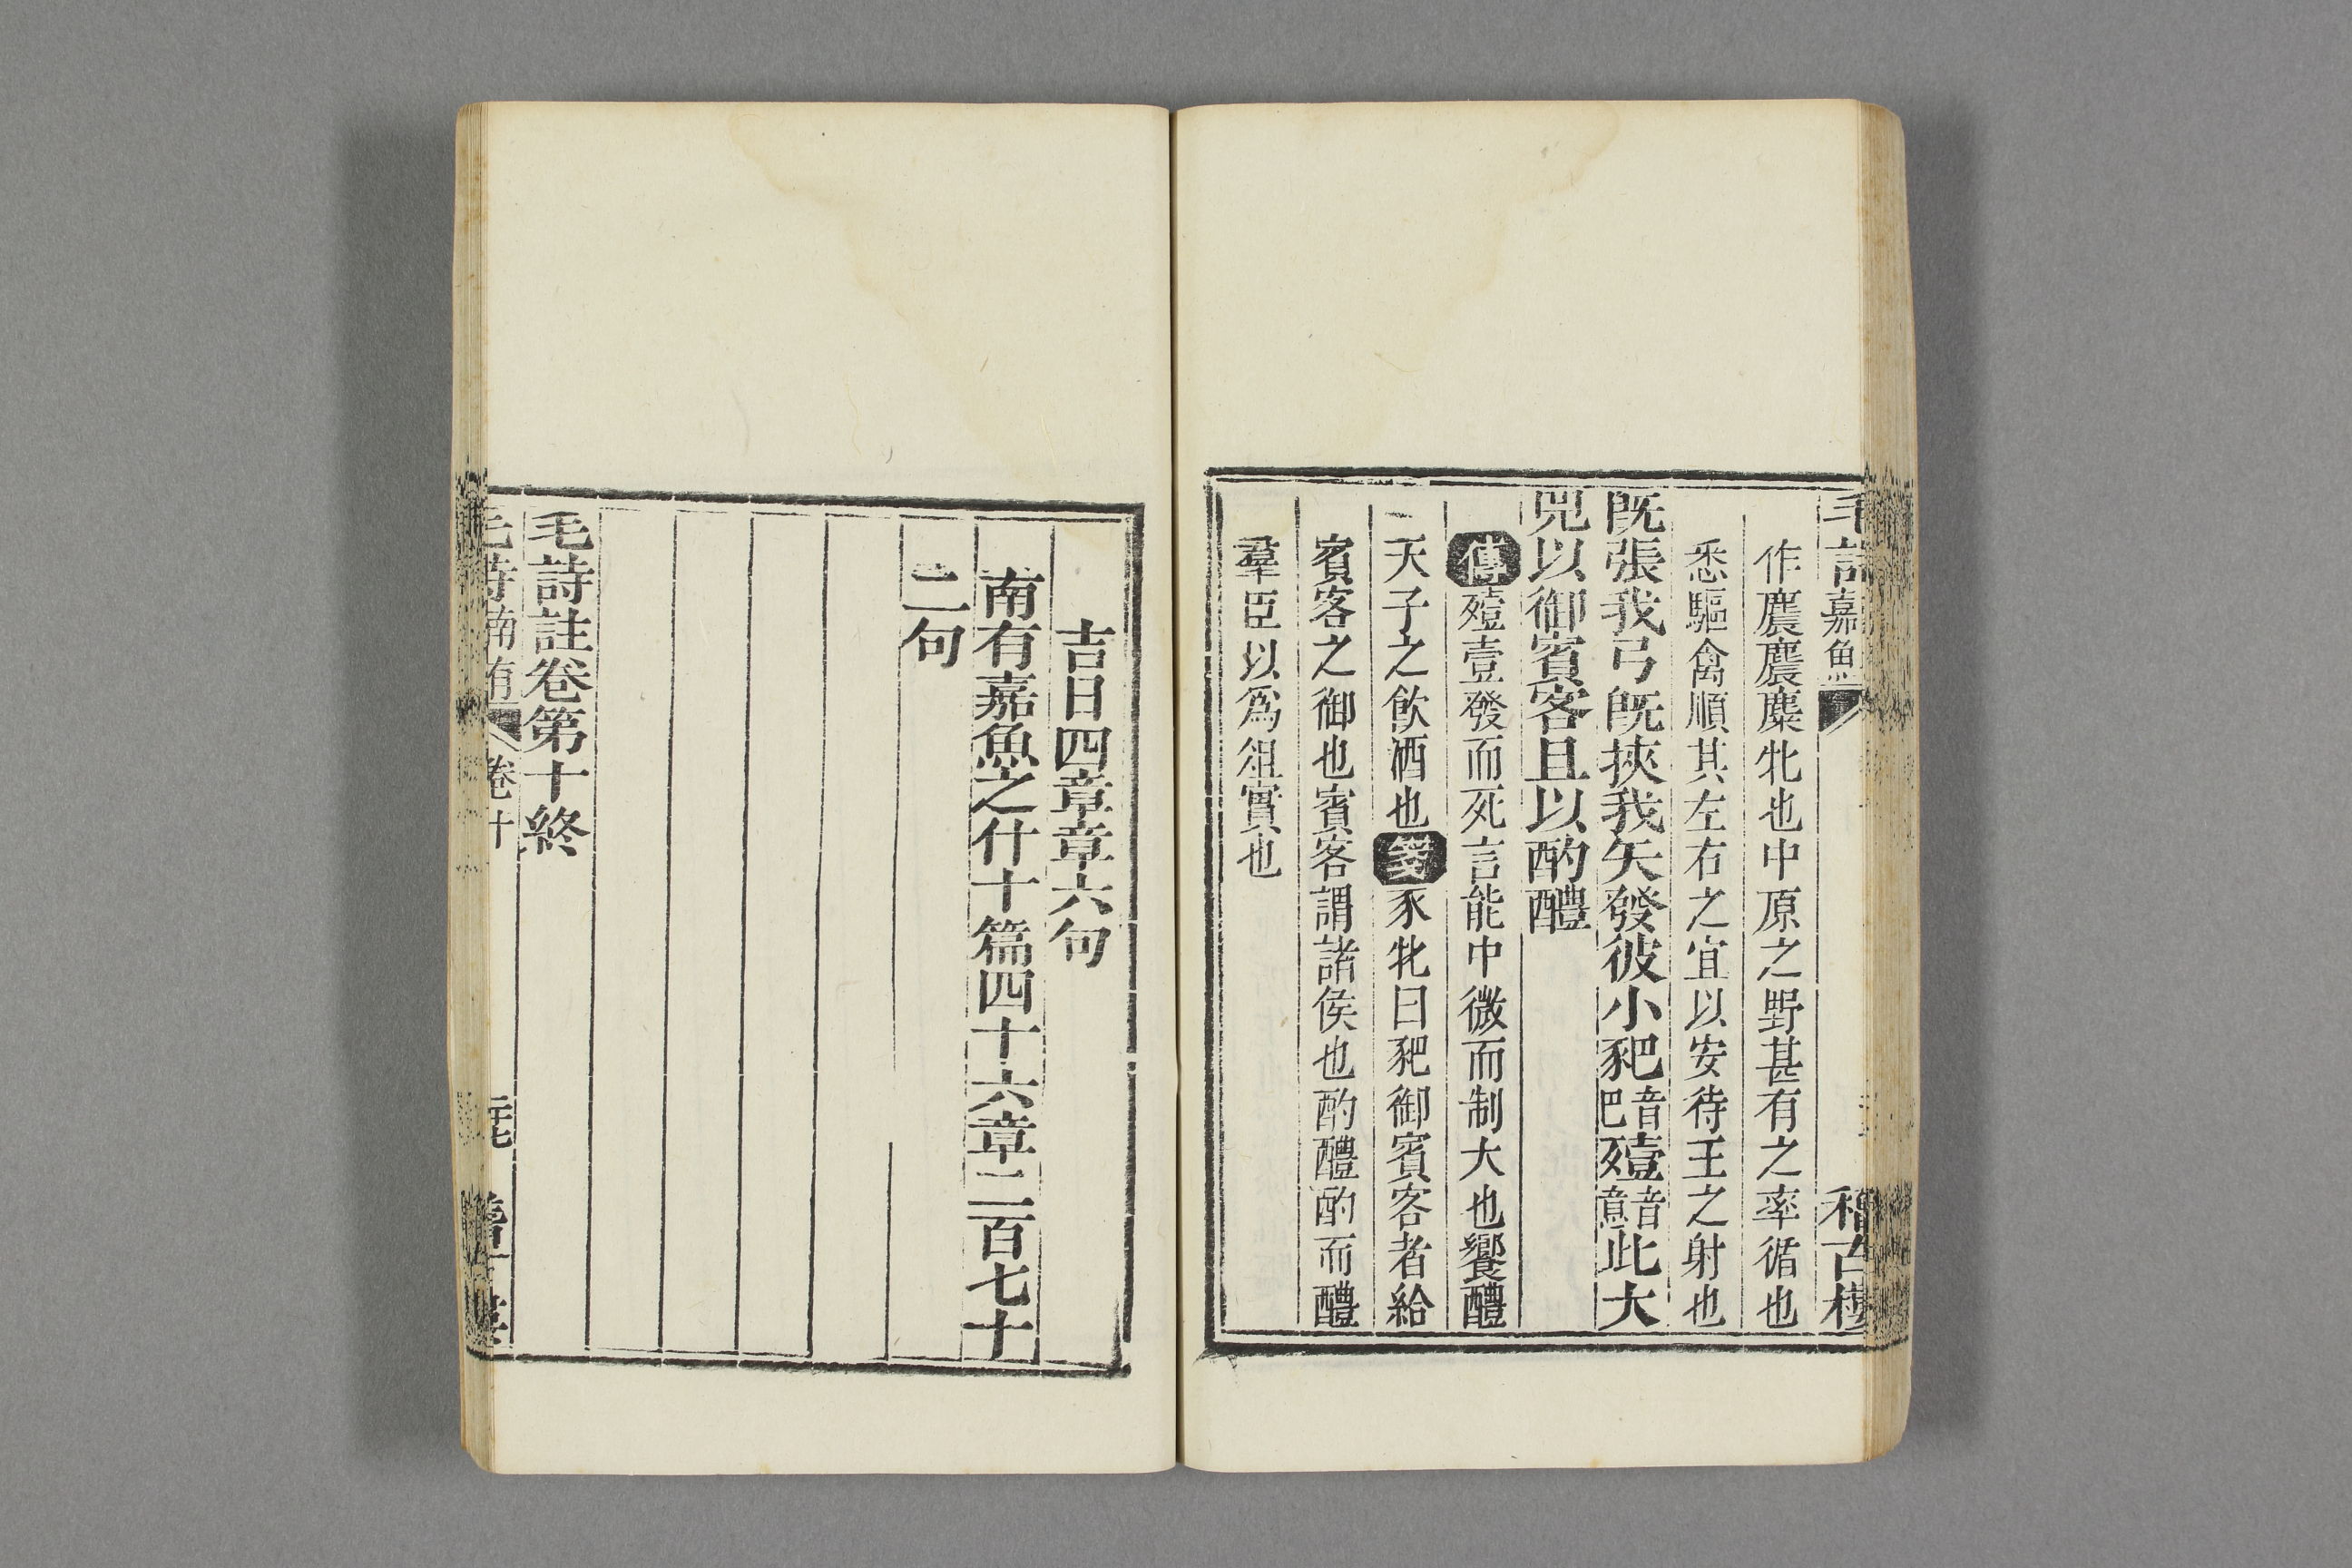 毛詩嘉魚 稽古樓
作麎麎麋牝也中原之野甚有之率循也
悉驅禽順其左右之宜以安待王之射也
既張我弓既挾我矢發彼小豝音巴殪音意此大
兕以御賓客且以酌醴
傳殪壹發而死言能中微而制大也饗醴
天子之飲酒也箋豕牝曰豝御賓客者給
賓客之御也賓客謂諸侯也酌醴酌而醴
羣臣以爲俎實也
吉日四章章六句
南有嘉魚之什十篇四十六章二百七十
二句
毛詩註卷第十終
毛詩南有 卷十